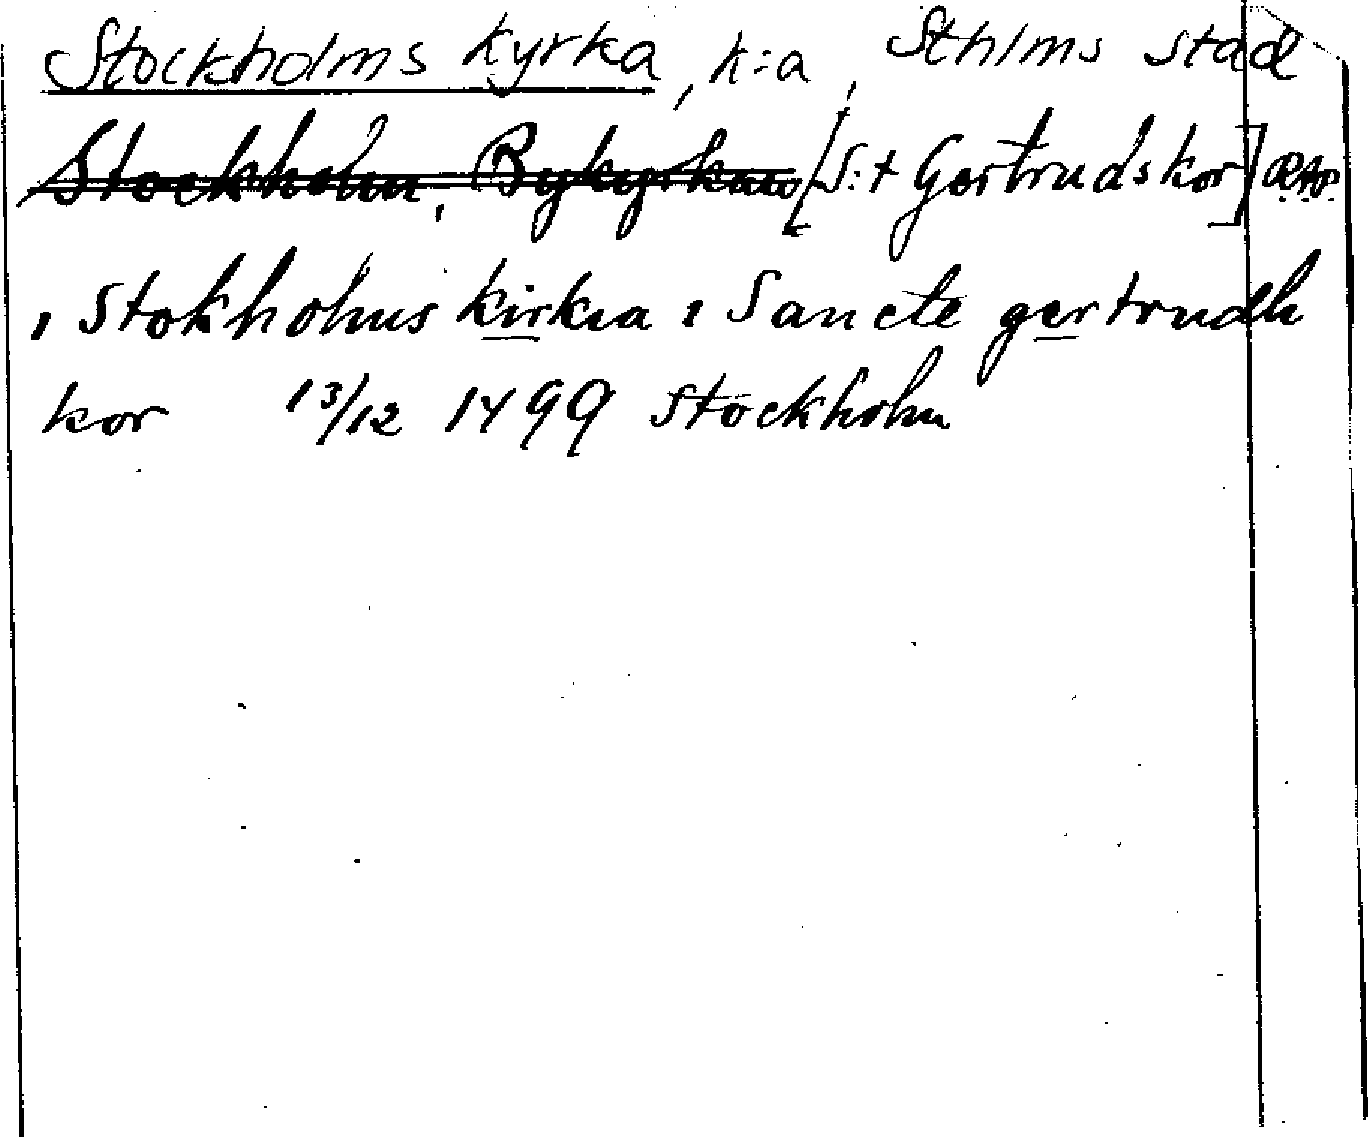 Stockholms kyrka, k:a, Sthlms stad
Stockholm, Bykyrkan [S:t Gertruds kor]
i Stokholms kirkia i Sancte gertrudh
kor 13/12 1499 Stockholm